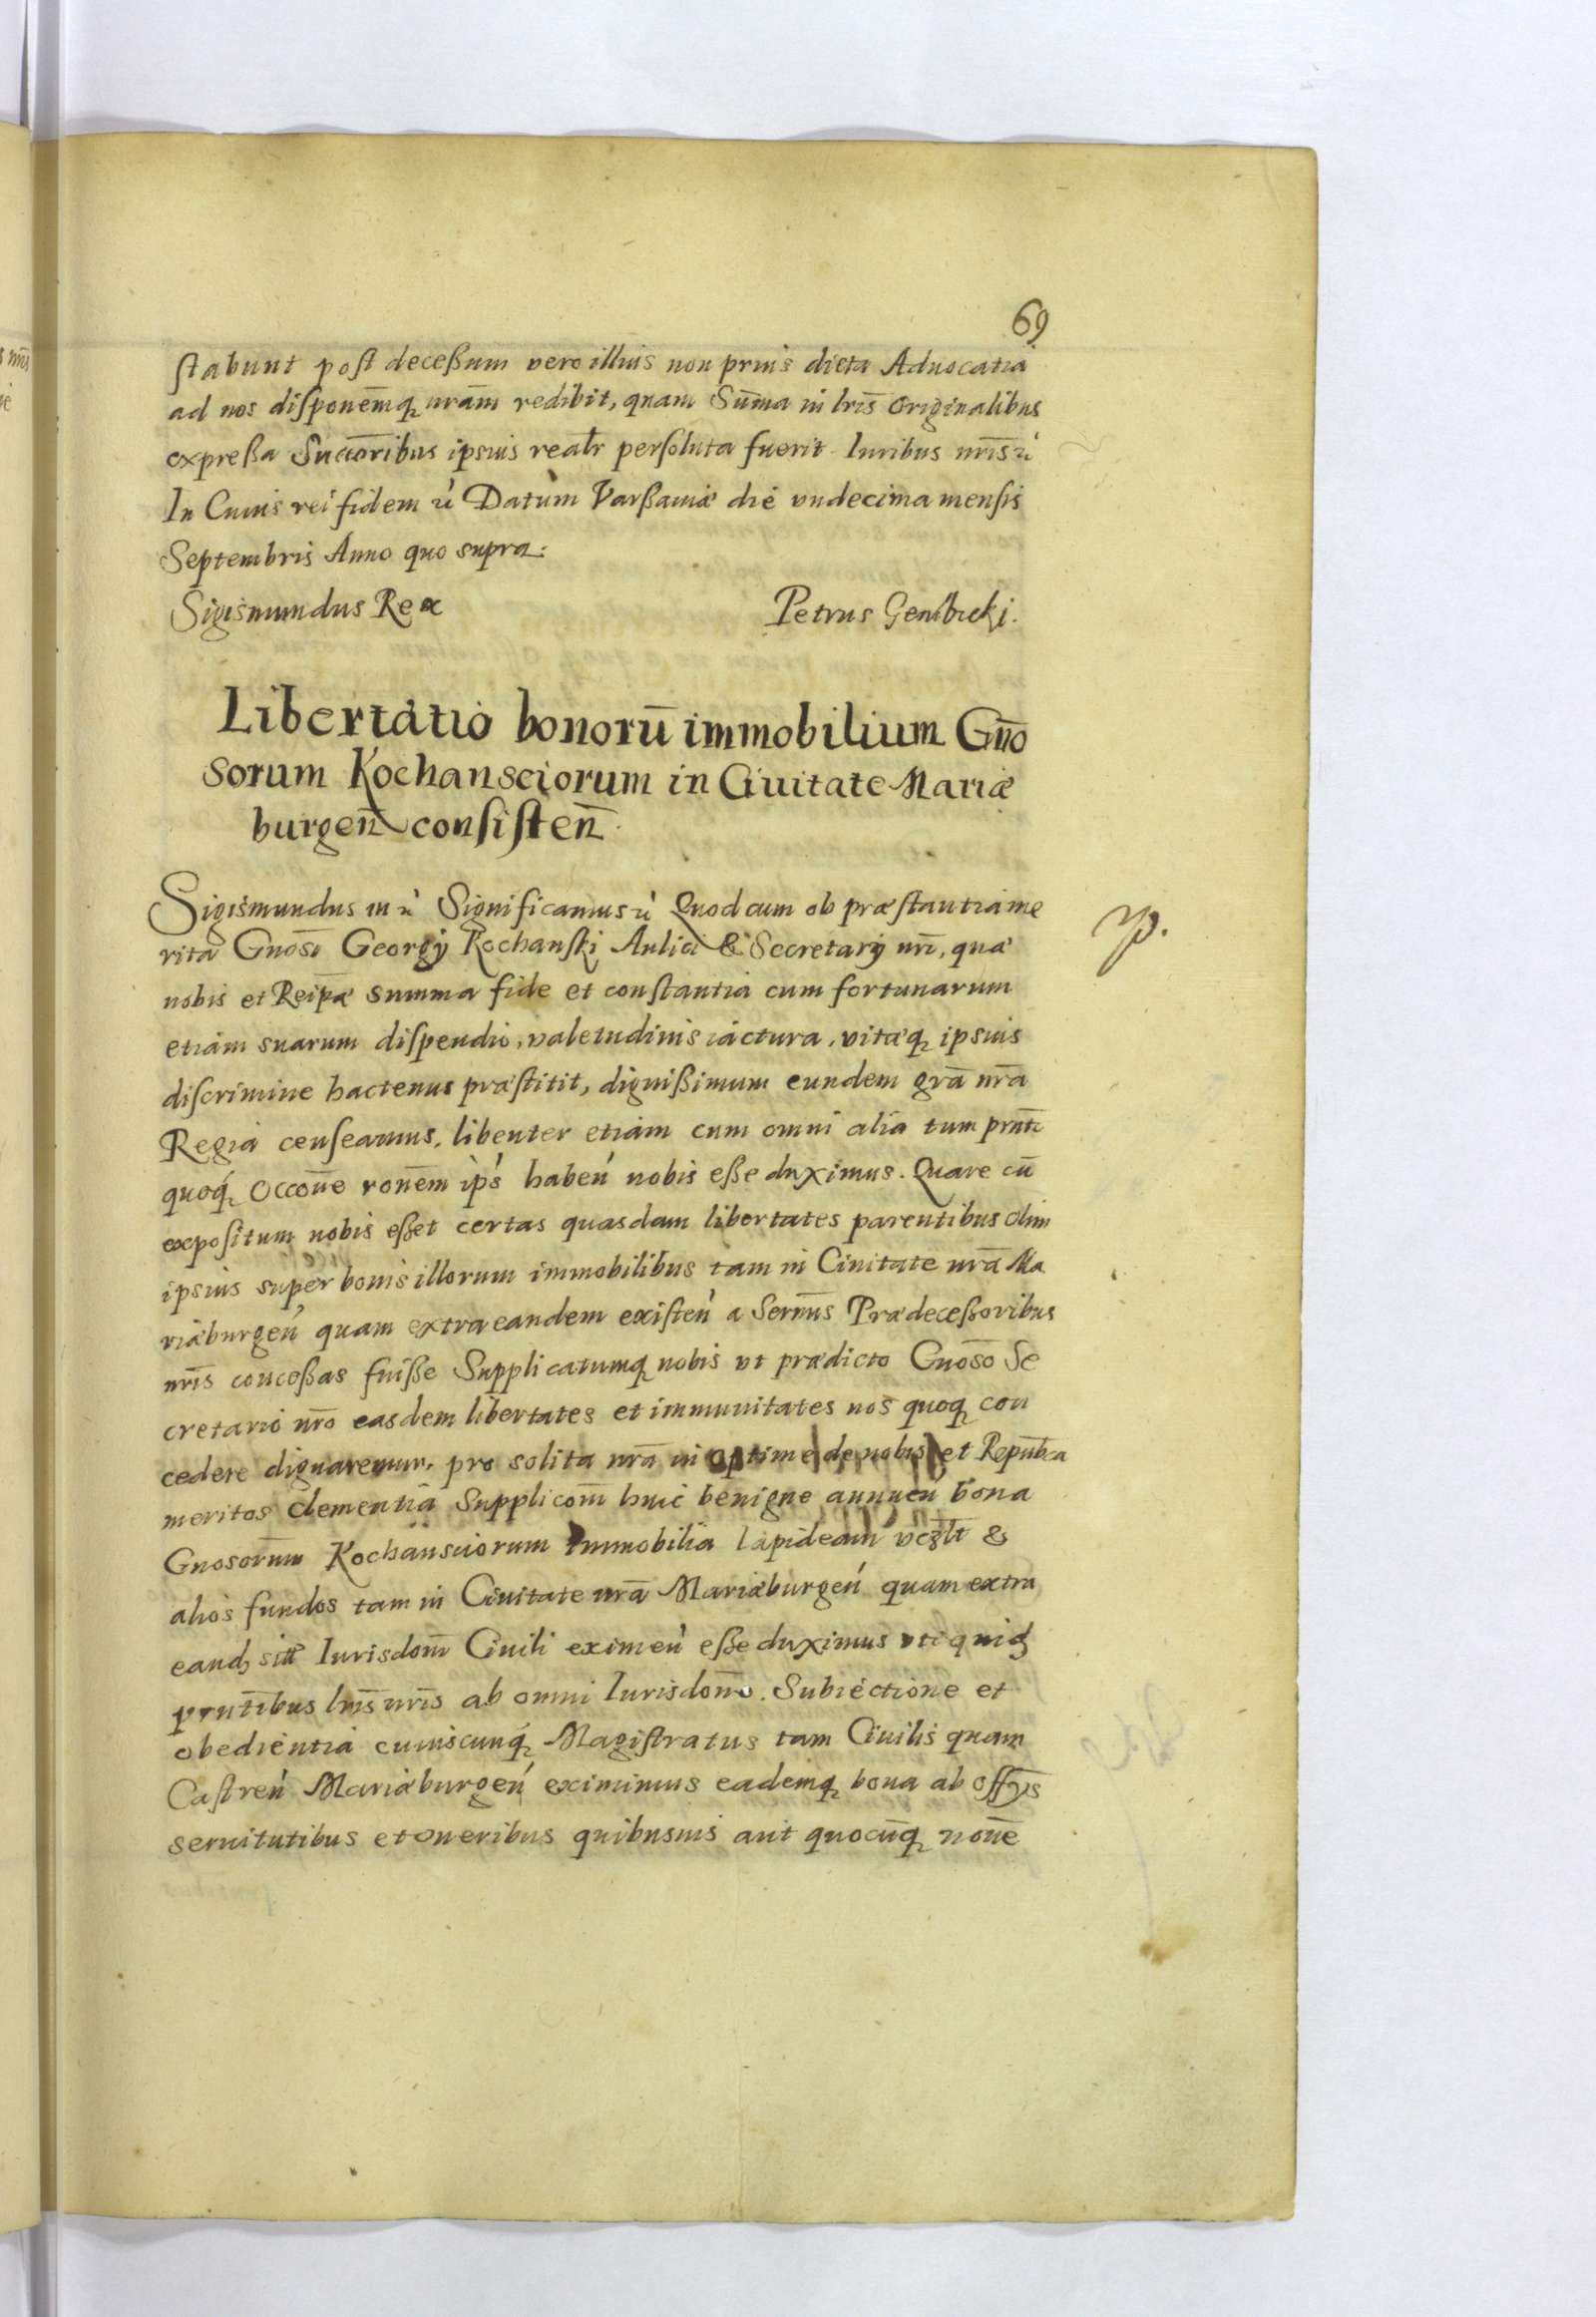 69
stabunt post decessum vero illius non prius dicta Aduocatia
ad nos disponẽmq₃ nrãm redibit, quam Sũma in lrĩs originalibus
expressa Succorĩbus ipsius realr̃ persoluta fuerit. Iuribus nrĩs ũ
In Cuius rei fidem ũ Datum Varssauiæ die vndecima mensis
Septembris Anno quo supra.
Sigismundus Rex Petrus Gembicki.
Libertatio bonorũ immobilium Gnõ
sorum Kochansciorum in Ciuitate Mariæ
burgen̄ consisten̄.
Sigismundus III ũ Significamus ũ Quod cum ob præstantia me
rita Gnosĩ Georgÿ Kochanski Aulici & Secretarÿ nrĩ, quæ
nobis et Reipæ̃ summa fide et constantia cum fortunarum
etiam suarum dispendio, valetudinis iactura, vitæq₃ ipsius
discrimine hactenus præstitit, dignissimum eundem grã nrã
Regia censeamus, libenter etiam cum omni alia tum prñti
quoq₃ occonẽ ronẽm ips̃ haben̄ nobis esse duximus. Quare cũ
expositum nobis esset certas quasdam libertates parentibus olim
ipsius super bonis illorum immobilibus tam in Ciuitate nrã Ma
riæburgen̄ quam extra eandem existen̄ a Sermĩs Prædecessoribus
nrĩs concessas fuisse Supplicatumq₃ nobis vt prædicto Gnoso̅ Se
cretario nrõ easdem libertates et immunitates nos quoq₃ con
cedere dignaremur, pro solita nrã in optime de nobis et Repub̃ca
meritos clementia Supplicom̃ huic benigne annuen̄ bona
Gnosorum̃ Kochansciorum Immobilia lapideam vczlt̃ &
alios fundos tam in Ciuitate nrã Mariæburgen̄ quam extra
eand₃ sitã Iurisdom̃ Ciuili eximen̄ esse duximus vti quid₃
prñtibus lrĩs nrĩs ab omni Iurisdonẽ. Subiectione et
obedientia cuiuscunq₃ Magistratus tam Ciuilis quam
Castren̄ Mariæburgen̄ eximimus eademq₃ bona ab offÿs
seruitutibus et oneribus quibusuis aut quocũq₃ nonẽ